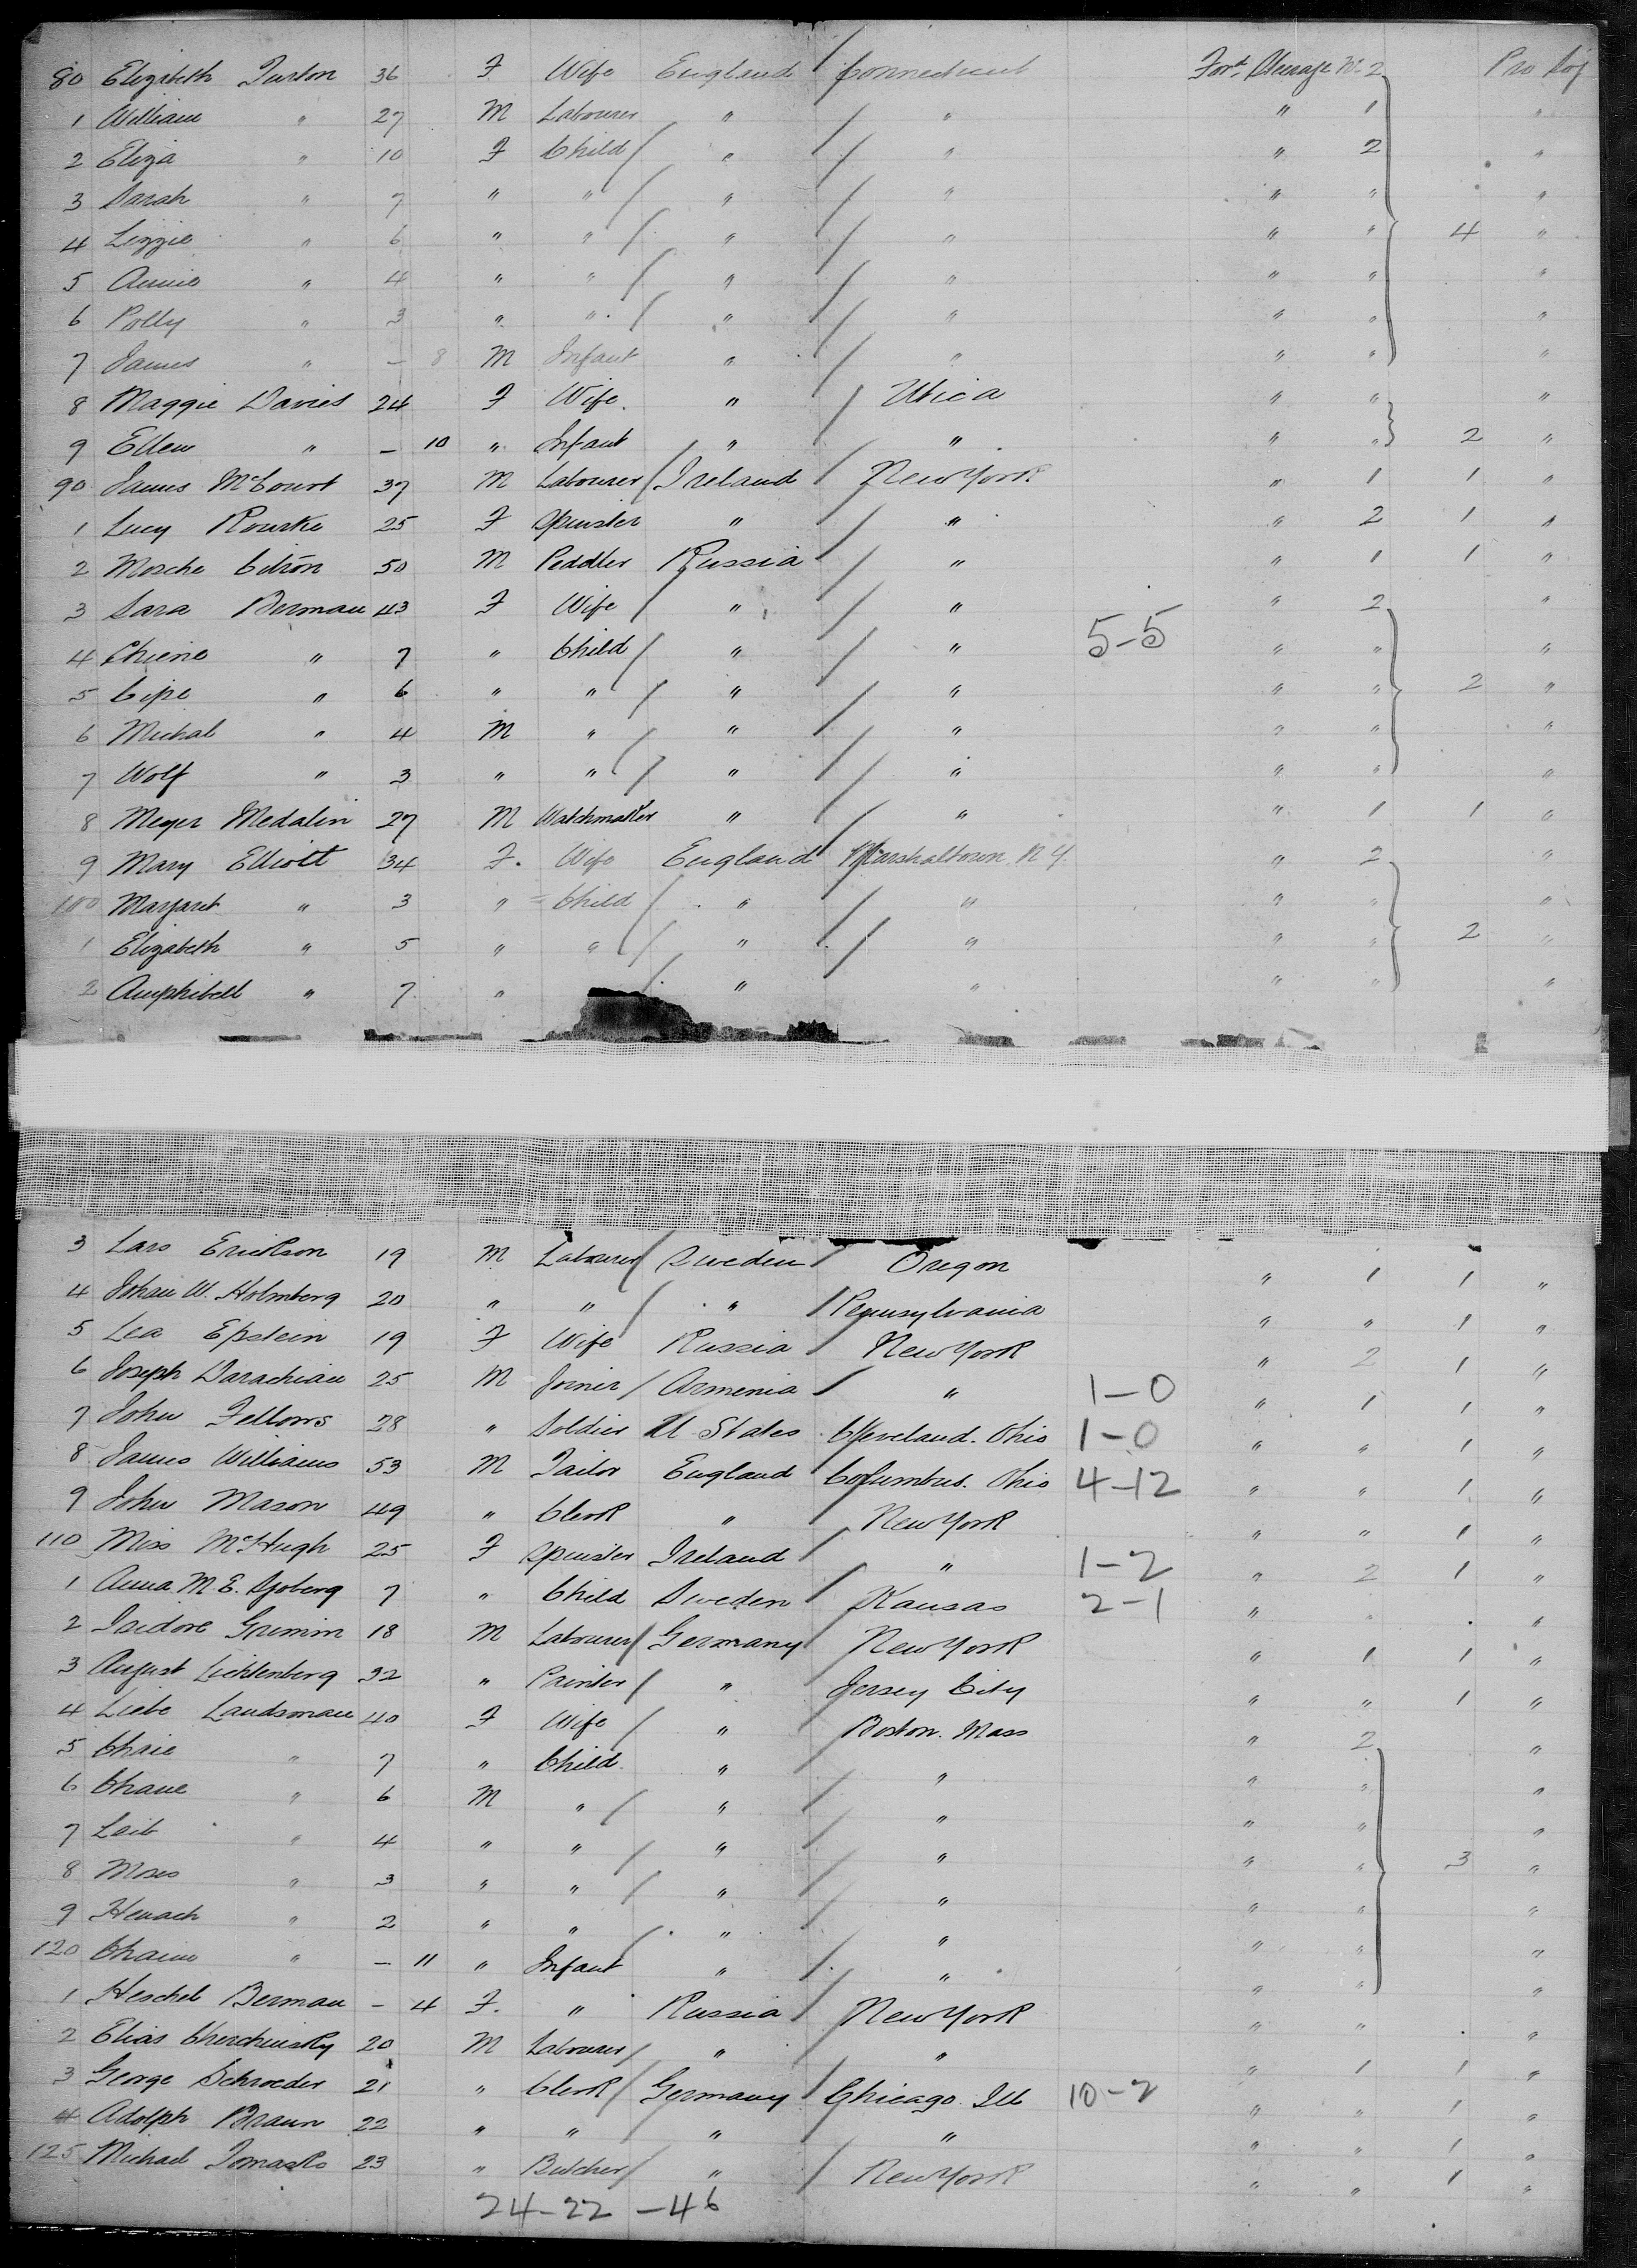 80 Elizabeth Turton 36 F Wife England Connecticut Ford Steerage No. 2 Pro Soj
1 William " 27 M Labourer " " " 1 "
2 Eliza " 10 F Child " " " 2 "
3 Sarah " 7 " " " " " " "
4 Lizzie " 6 " " " " " " 4 "
5 Annie " 4 " " " " " " "
6 Polly " 3 " " " " " " "
7 James " – 8 M Infant " " " " "
8 Maggie Davies 24 F Wife " Utica " " "
9 Ellen " – 10 " Infant " " " " 2 "
90 James McCourt 37 M Labourer Ireland New York " 1 1 "
1 Lucy Rourke 25 F Spinster " " " 2 1 "
2 Mosche Citron 50 M Peddler Russia " " 1 1 "
3 Sara Berman 43 F Wife " " " 2 "
4 Chiene " 7 " Child " " 5-5 " " "
5 Cipe " 6 " " " " " " 2 "
6 Michal " 4 M " " " " " "
7 Wolf " 3 " " " " " " "
8 Meyer Medalin 27 M Watchmaker " " " 1 1 "
9 Mary Elliott 34 F. Wife England Marshaltown N Y. " 2 "
100 Margaret " 3 " Child " " " " "
1 Elizabeth " 5 " " " " " " 2 "
2 Amphibell " 7 " " " " " "
3 Lars Erickson 19 M Labourer Sweden Oregon " 1 1 "
4 Johan W. Holmberg 20 " " " Pennsylvania " " 1 "
5 Lea Epstein 19 F Wife Russia New York " 2 1 "
6 Joseph Darachian 25 M Joiner Armenia " 1-0 " 1 1 "
7 John Fellows 28 " Soldier U States Cleveland. Ohio 1-0 " " 1 "
8 James Williams 53 M Tailor England Columbus. Ohio 4-12 " " 1 "
9 John Mason 49 " Clerk " New York " " 1 "
110 Miss McHugh 25 F Spinster Ireland " 1-2 " 2 1 "
1 Anna M. E. Sjoberg 7 " Child Sweden Kansas 2-1 " " . "
2 Isidore Grimm 18 M Labourer Germany New York " 1 1 "
3 August Lichtenberg 32 " Painter " Jersey City " " 1 "
4 Liebe Landsman 40 F Wife " Boston. Mass " 2 "
5 Chaie " 7 " Child " " " " "
6 Chane " 6 M " " " " " "
7 Leib " 4 " " " " " " 3 "
8 Moses " 3 " " " " " " "
9 Henach " 2 " " " " " " "
120 Chaim " – 11 " Infant " " " " "
1 Heschel Berman – 4 F. " Russia New York " " . "
2 Elias Cherchinsky 20 M Labourer " " " 1 1 "
3 George Schroeder 21 " Clerk Germany Chicago Ill 10-2 " " 1 "
4 Adolph Braun 22 " " " " " " 1 "
125 Michael Tomasko 23 " Butcher " New York " " 1 "
24-22-46